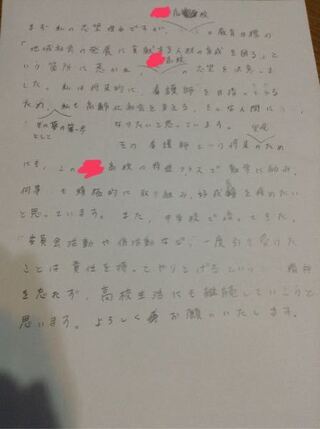 高校
まず私の志望理由ですが、の教育目標の
「地域社会の発展に貢献する人材の育成を図る」と
いう箇所に惹かれ高校の志望を決意しま
した。私は将来的に、看護師を目指している
ため、私も高齢化社会を支える、そんな人間に
その夢の第一歩として
なりたいと思っています。
その看護師という将来のため
にも、この高校に特進クラスで勉学に励み、
何事も積極的に取り組み、好成績を修めたい
と思っています。また、中学校で培ってきた、
委員会活動や係活動など、一度引き受けた
ことは責任を持ってやりとげるという精神
を忘れず、高校生活にも継続していこうと
思います。よろしくお願いいたします。